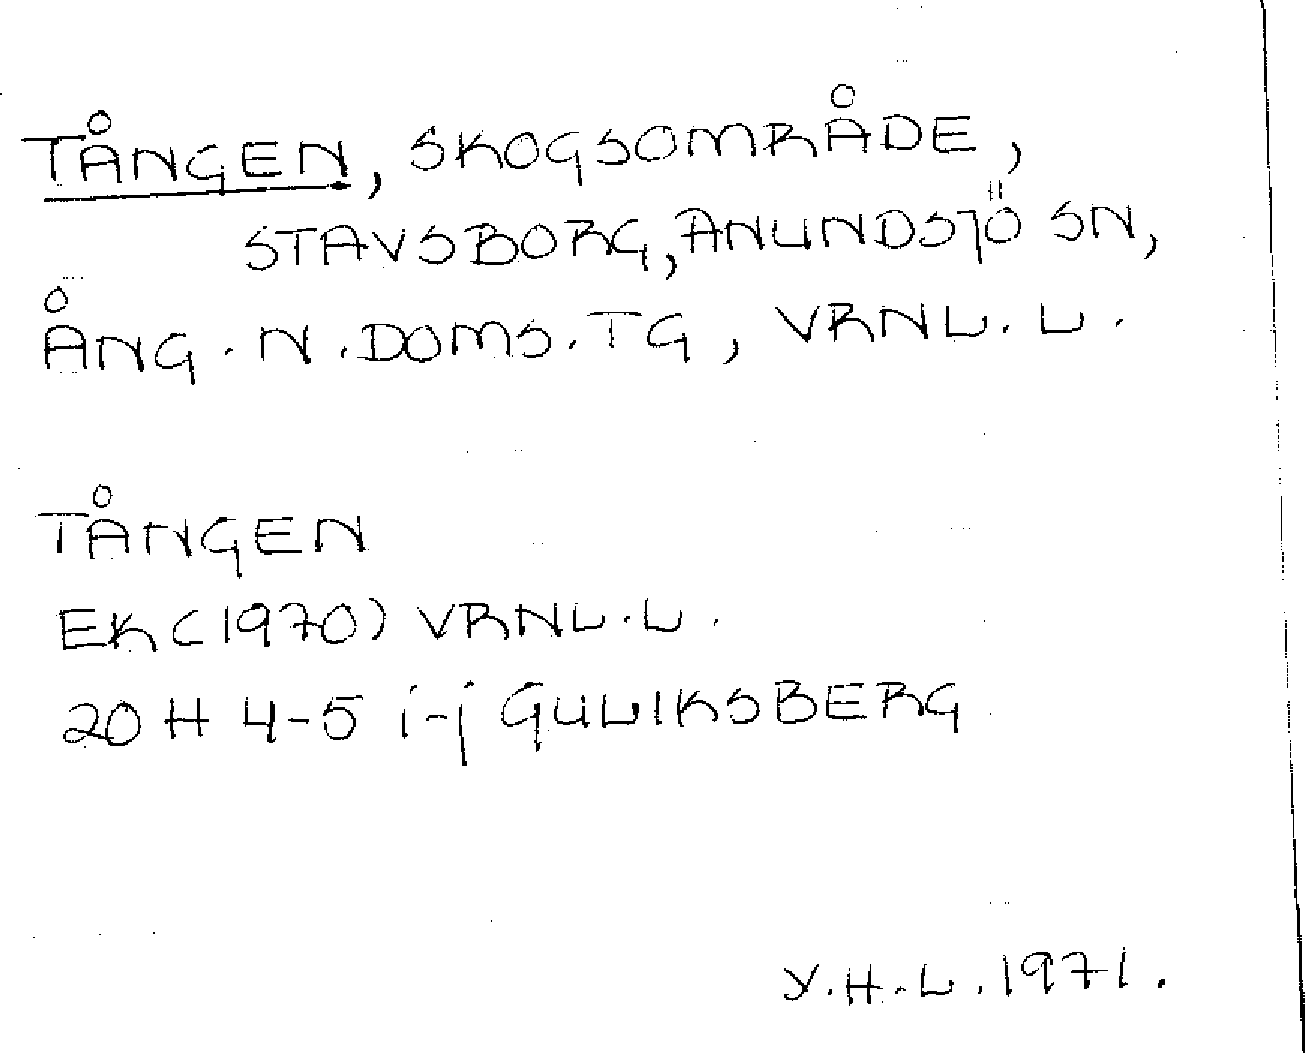 TÅNGEN, SKOGSOMRÅDE,
STAVSBORG, ANUNDSJÖ SN,
ÅNG. N. DOMS. TG, VRNL. L.
TÅNGEN
EK (1970) VRNL. L.
20 H 4-5 i-j GULLIKSBERG
Y. H. L. 1971.